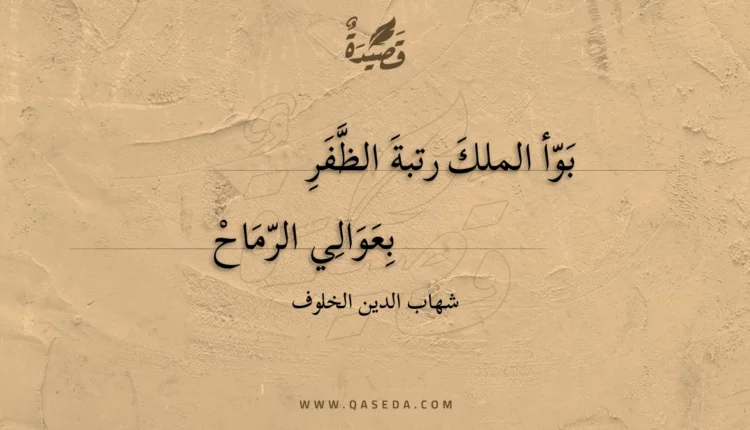 قَصِيدَةٌ
بَوّأ الملكَ رتبةَ الظَّفَرِ
بِعَوَالِي الرّمَاحْ
شهاب الدين الخلوف
WWW.QASEDA.COM